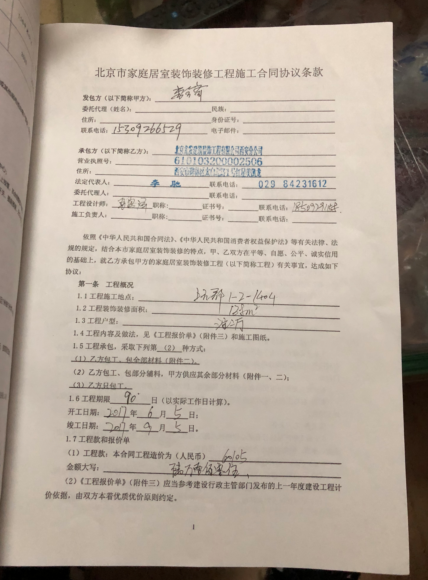 北京市家庭居室装饰装修工程施工合同协议条款
发包方（以下简称甲方）：
委托代理（姓名）： 民族：
住所： 身份证号：
联系电话：15309266529 电子邮件：
承包方（以下简称乙方）：
营业执照号：610103200002506
住所：
法定代表人： 李驰 联系电话：029 84231612
委托代理人： 联系电话：
工程设计师： 职称： 证书号： 联系电话：
施工负责人： 职称： 证书号： 联系电话：
依照《中华人民共和国合同法》、《中华人民共和国消费者权益保护法》等有关法律、法
规的规定，结合本市家庭居室装饰装修的特点，甲、乙双方在平等、自愿、公平、诚实信用
的基础上，就乙方承包甲方的家庭居室装饰装修工程（以下简称工程）有关事宜，达成如下
协议：
第一条 工程概况
1.1 工程施工地点： 1-2-1404
1.2 工程装饰装修面积：
1.3 工程户型：
1.4 工程内容及做法，见《工程报价单》（附件三）和施工图纸。
1.5 工程承包，采取下列第 （2） 种方式：
（1）乙方包工、包全部材料（附件二）。
（2）乙方包工、包部分辅料，甲方供应其余部分材料（附件一、二）；
（3）乙方只包工。
1.6 工程期限 90 日（以实际工作日计算）。
开工日期：2017 年 6 月 5 日；
竣工日期：2017 年 9 月 5 日。
1.7 工程款和报价单
（1）工程款：本合同工程造价为（人民币）
金额大写：
（2）《工程报价单》（附件三）应当参考建设行政主管部门发布的上一年度建设工程计
价依据，由双方本着优质优价原则约定。
1